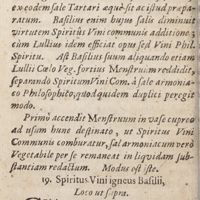 ex eodem sale Tartari æquè sit ac istud præpa-
ratum. Basilius enim hujus salis diminuit
virtutem Spiritûs Vini communis additione;
cùm Lullius idem efficiat opus sed Vini Phil.
Spiritu. Ast Basilius suum aliquando etiam
Lullii Cœlo Veg. fortius Menstruum reddidit,
separando Spiritum Vini Com. à sale armonia-
co Philosophico, quod quidem duplici peregit
modo.
Primò accendit Menstruum in vase cupreo
ad usum hunc destinato, ut Spiritus Vini
Communis comburatur, sal armoniatum verò
Vegetabile per se remaneat in liquidam sub-
stantiam redactum. Modus est iste.
19. Spiritus Vini igneus Basilii,
Loco ut supra.